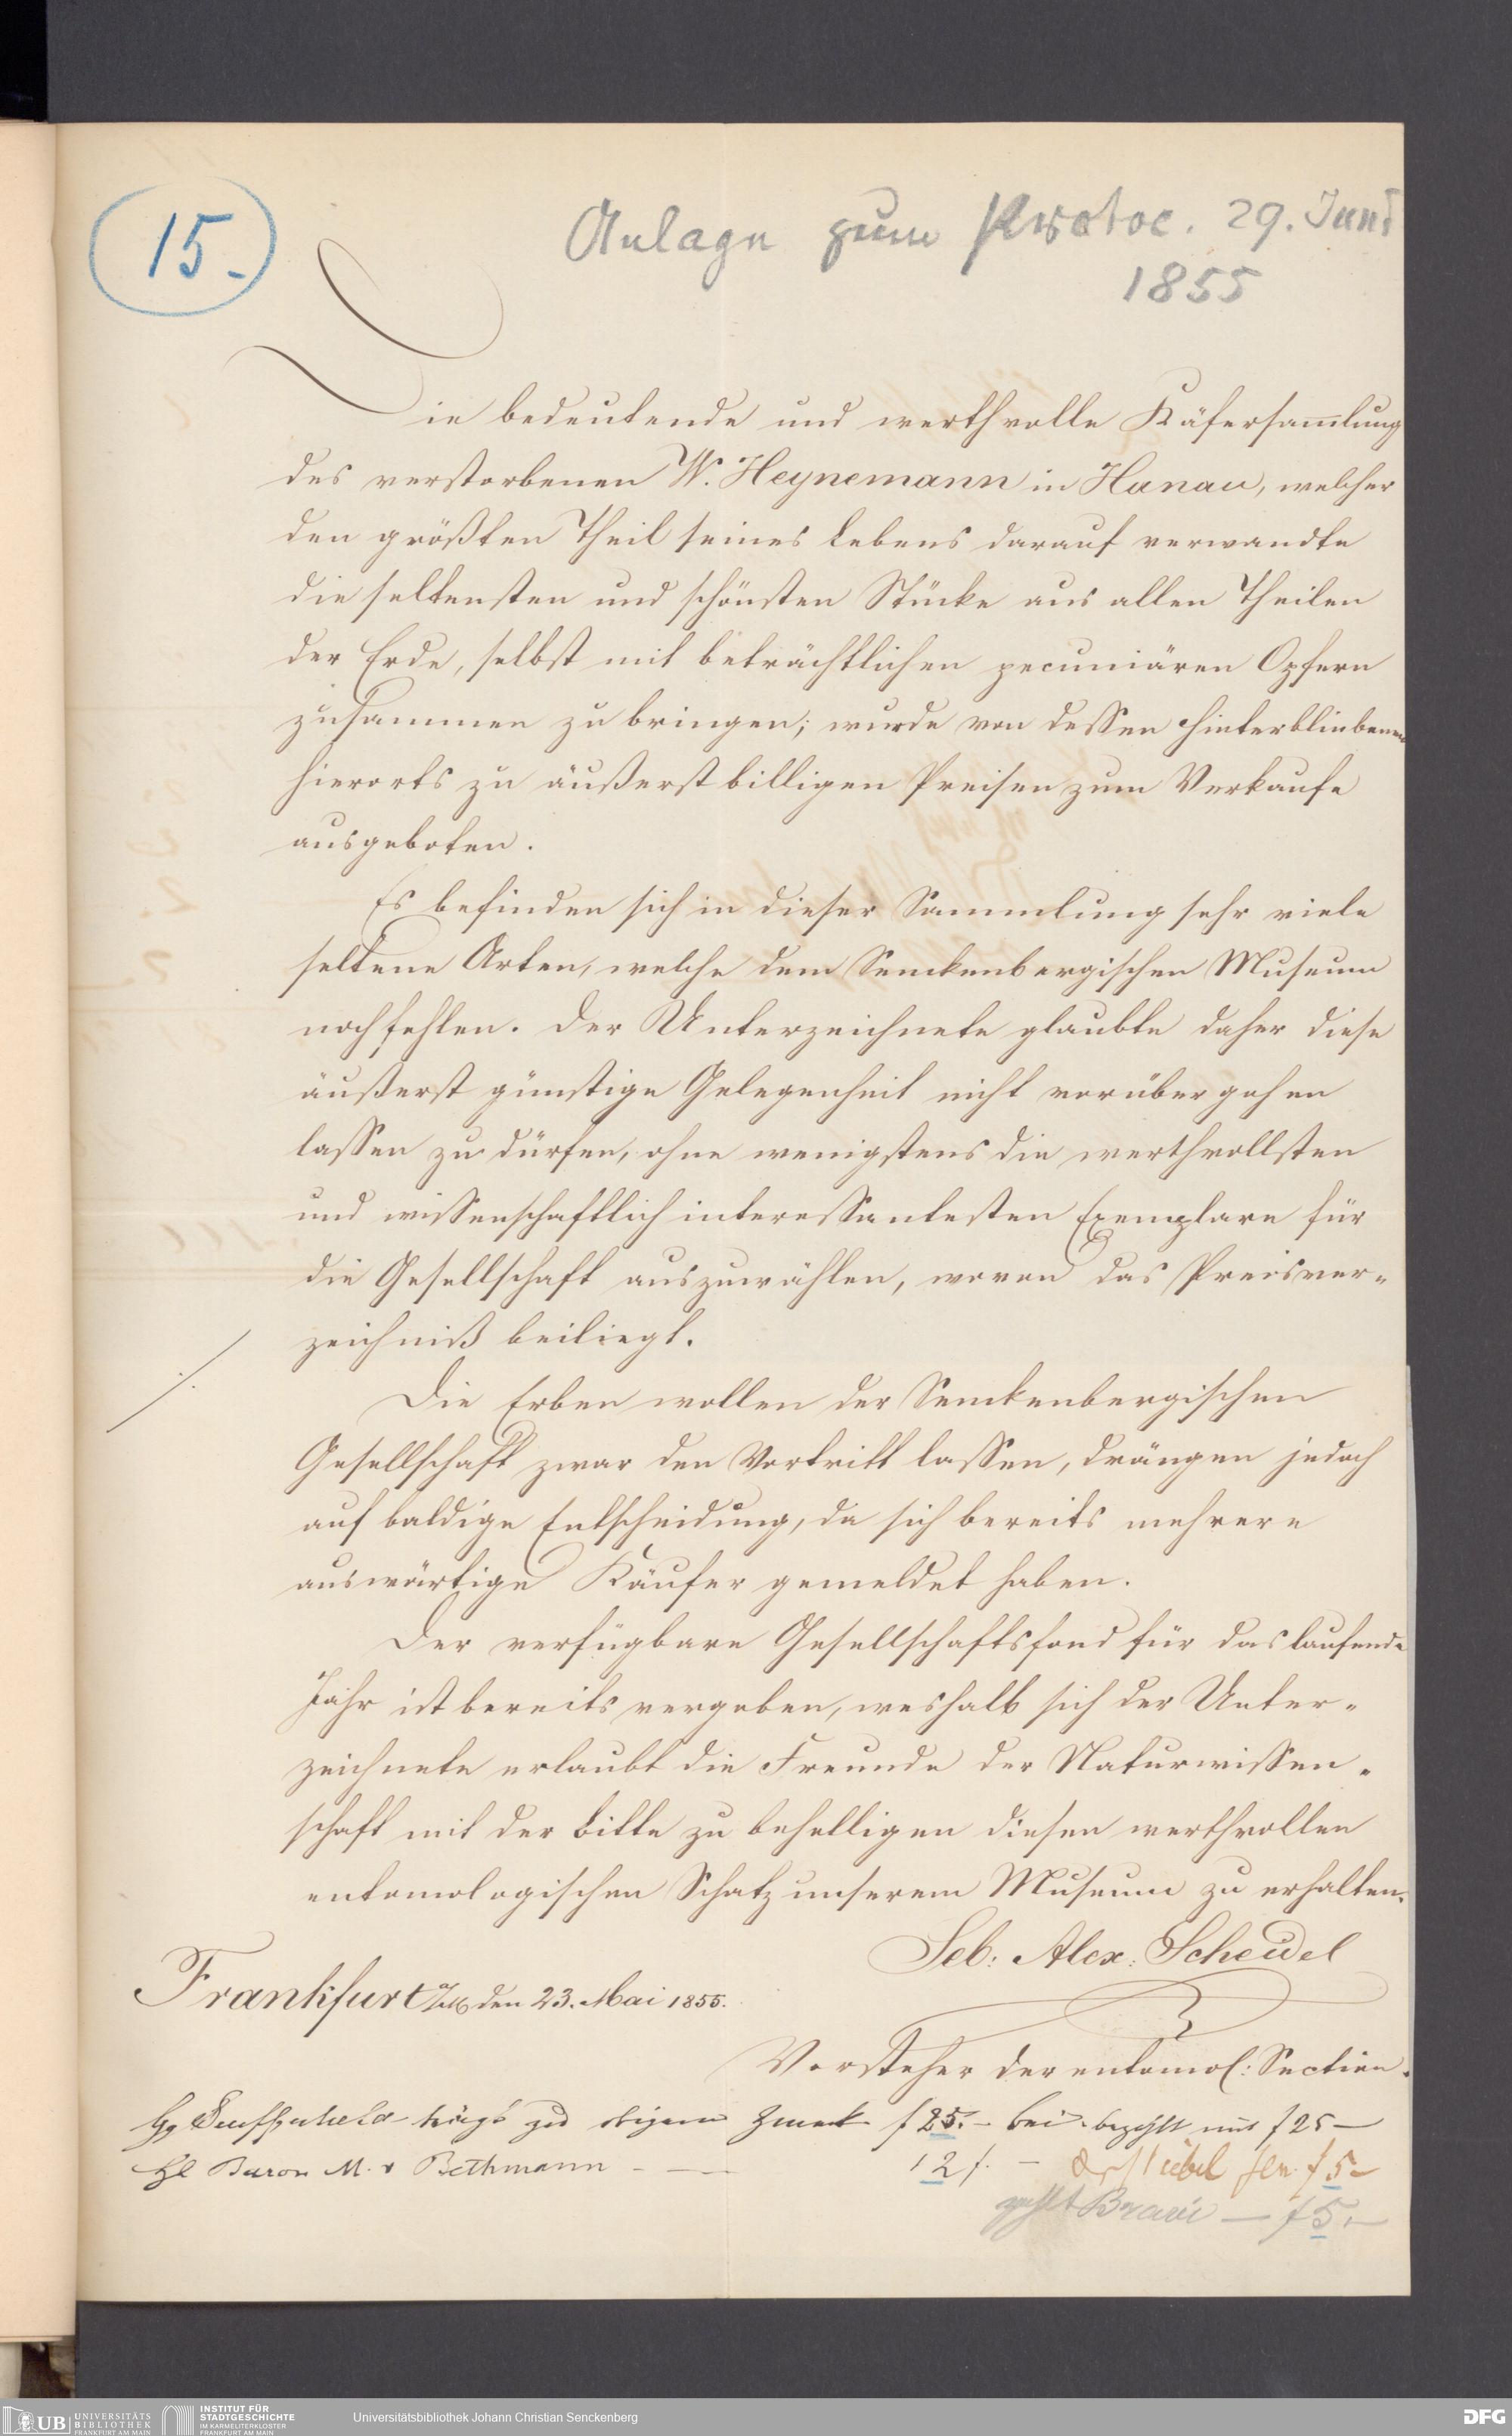 15.
Anlage zum Protoc. 29. Juni
1855
Die bedeutende und werthvolle Käfersammlung
des verstorbenen W. Heynemann in Hanau, welcher
den größten Theil seines Lebens darauf verwandte
die seltensten und schönsten Stücke aus allen Theilen
der Erde, selbst mit beträchtlichen pecuniären Opfern
zusammen zu bringen; wurde von dessen Hinterbliebenen
hierorts zu äußerst billigen Preisen zum Verkaufe
ausgeboten.
Es befinden sich in dieser Sammlung sehr viele
seltene Arten, welche dem Senckenbergischen Museum
noch fehlen. Der Unterzeichnete glaubte daher diese
äußerst günstige Gelegenheit nicht vorübergehen
lassen zu dürfen, ohne wenigstens die werthvollsten
und wissenschaftlich interessantesten Exemplare für
die Gesellschaft auszuwählen, wovon das Preisver-
zeichniß beiliegt.
Die Erben wollen der Senckenbergischen
Gesellschaft zwar den Vortritt lassen, drängen jedoch
auf baldige Entscheidung, da sich bereits mehrere
auswärtige Käufer gemeldet haben.
Der verfügbare Gesellschaftsfond für das laufende
Jahr ist bereits vergeben, weshalb sich der Unter-
zeichnete erlaubt die Freunde der Naturwissen-
schaft mit der Bitte zu behelligen diesen werthvollen
entomologischen Schatz unserem Museum zu erhalten.
Seb: Alex: Scheidel
Frankfurt a/M den 23. Mai 1855.
Vorsteher der entomol: Section.
trägt zu obigem Zweck f 25.- bei. bezahlt mit f 25 -
Hl Baron M. v Bethmann - — 12 f. - Dr Stiebel sen. f 5 -
zahlt Bravi — f 5.-
UB UNIVERSITÄTS BIBLIOTHEK FRANKFURT AM MAIN
INSTITUT FÜR STADTGESCHICHTE IM KARMELITERKLOSTER FRANKFURT AM MAIN
Universitätsbibliothek Johann Christian Senckenberg
DFG